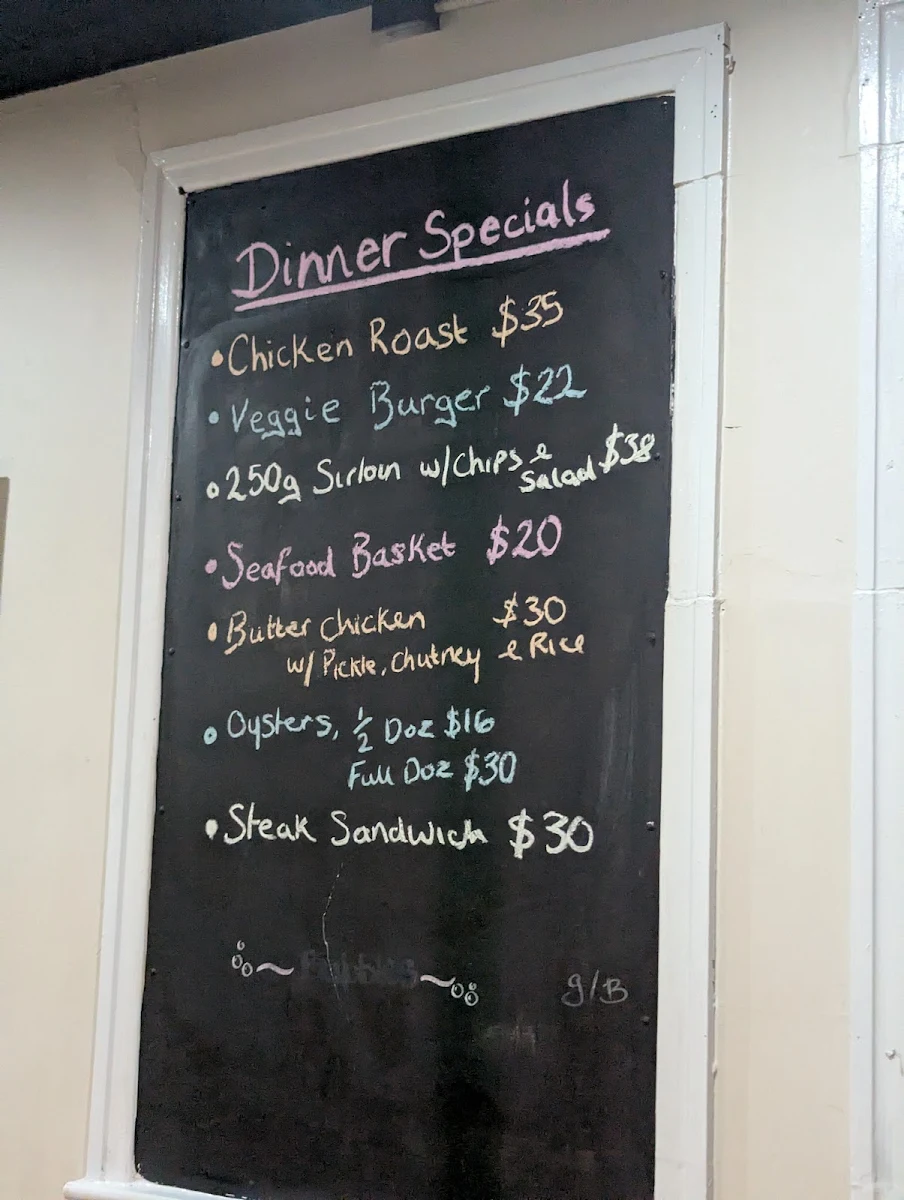 Dinner Specials
• Chicken Roast $35
• Veggie Burger $22
• 250g Sirloin w/Chips & Salad $38
• Seafood Basket $20
• Butter chicken $30
w/ Pickle, Chutney & Rice
• Oysters, ½ Doz $16
Full Doz $30
• Steak Sandwich $30
g/B